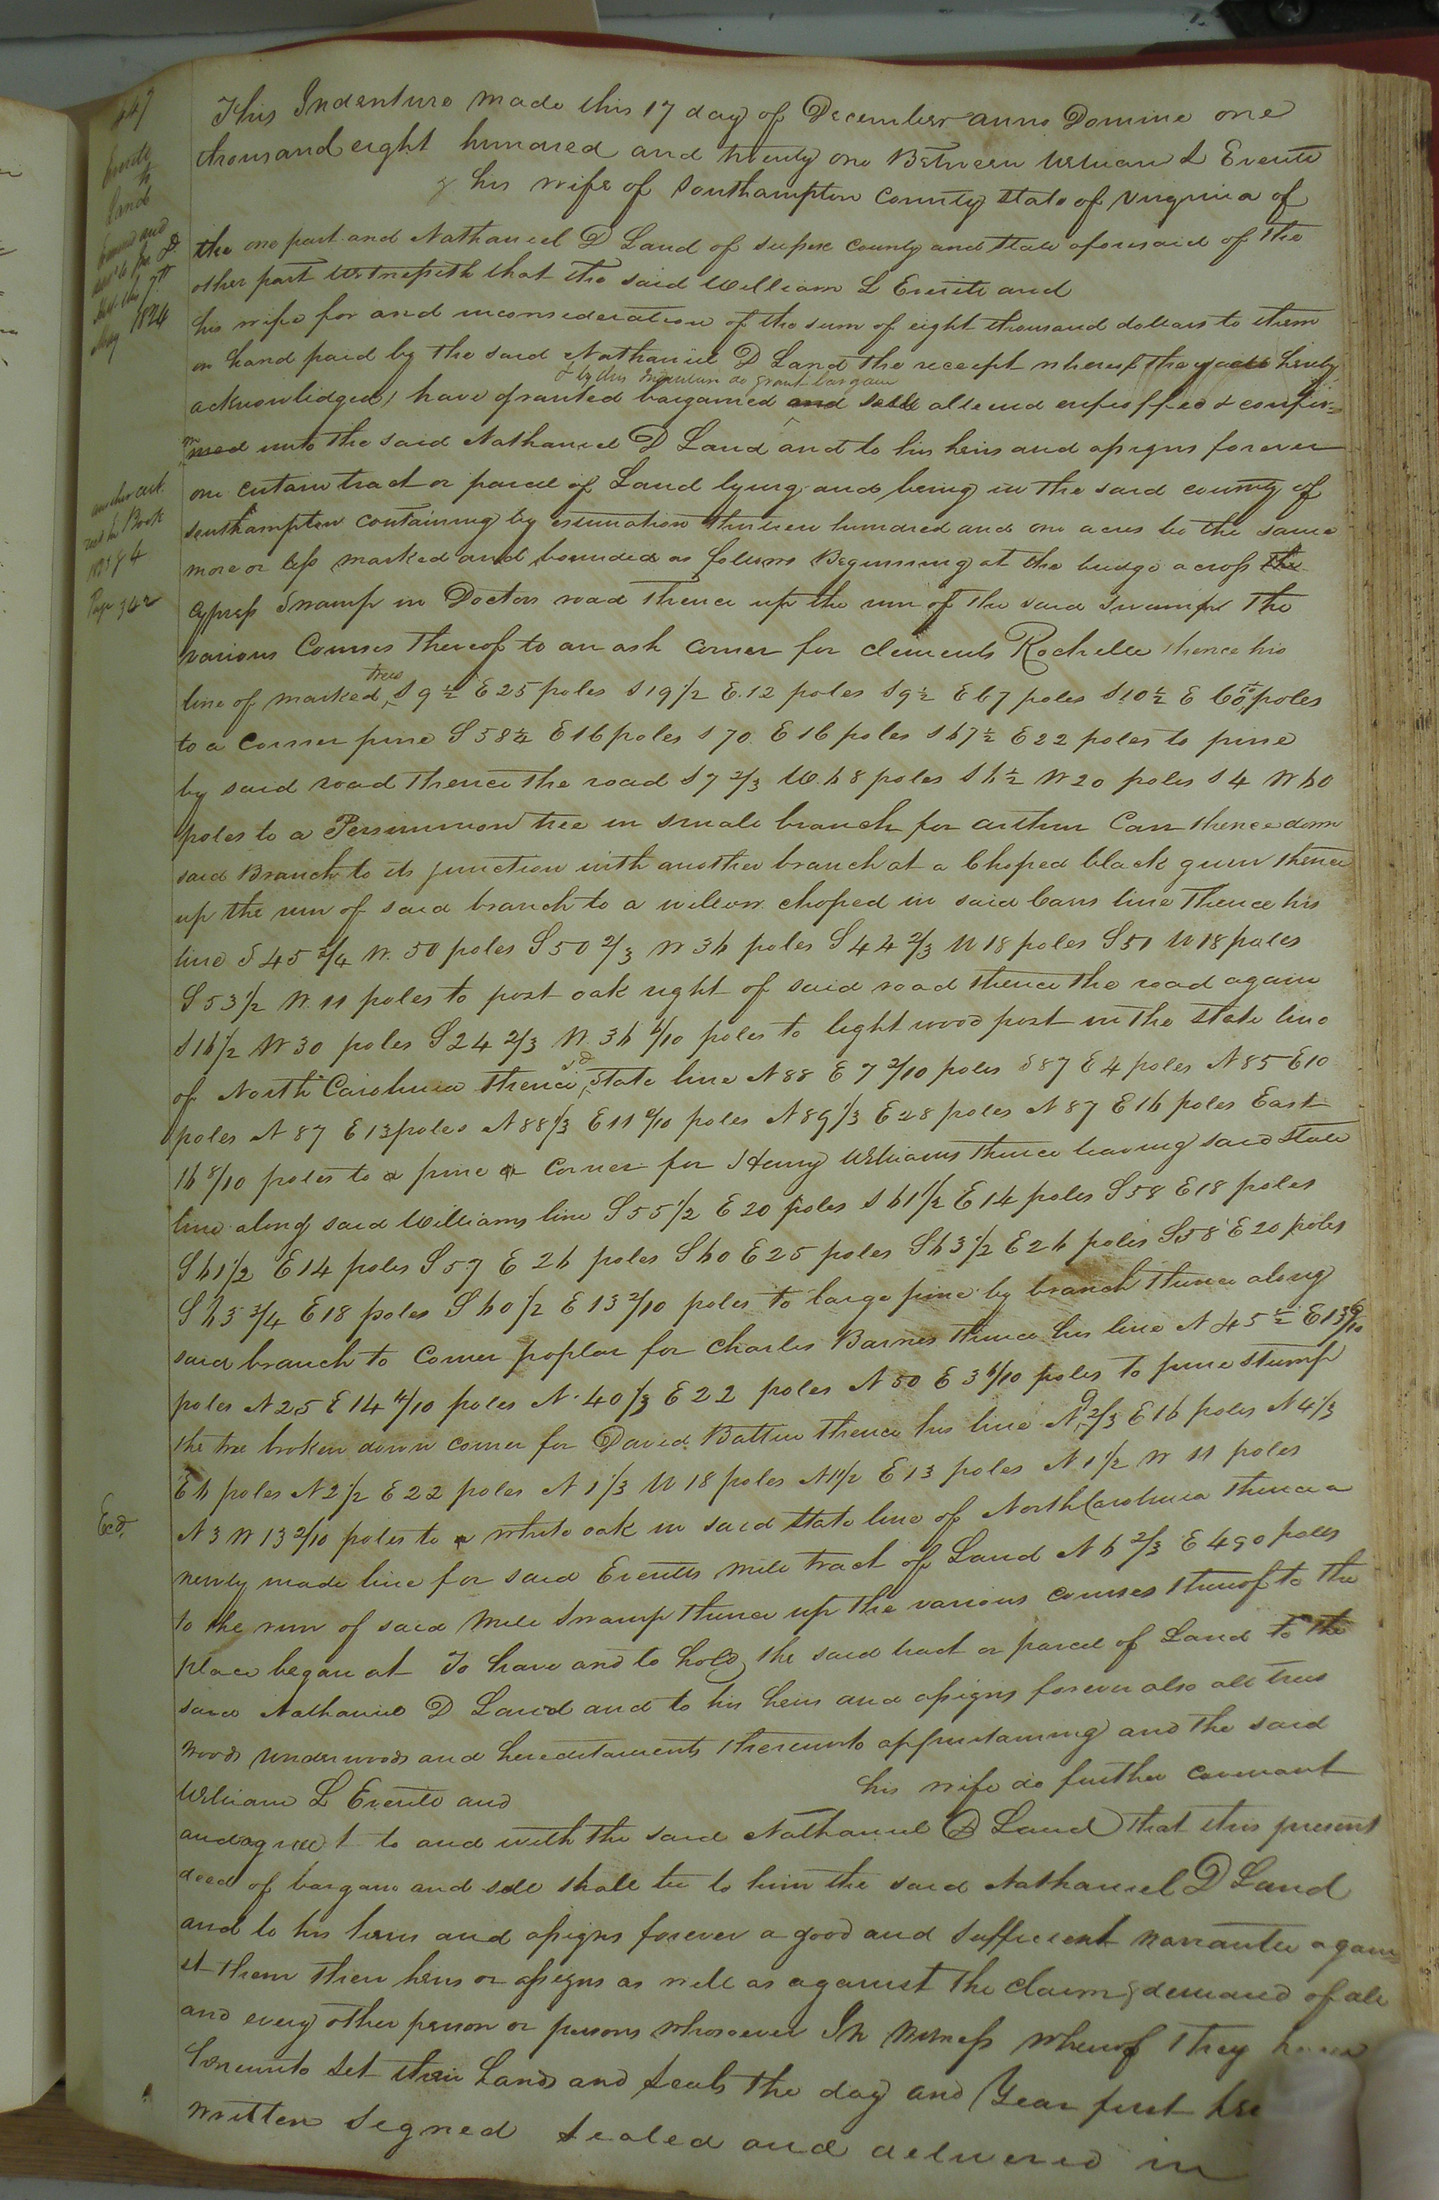 447
Everitt
to
Land
Examined and
del'd to
7th
May 1824
This Indenture made this 17 day of December anno Domine one
thousand eight hundred and twenty one Between William L Everitt
& his wife of Southampton County State of Virginia of
the one part and Nathaniel D Land of Sussex County and State aforesaid of the
other part Witnesseth that the said William L Everitt and
his wife for and inconsideration of the sum of eight thousand dollars to them
in hand paid by the said Nathaniel D Land the receept whereof they do hereby
& by this Indenture do grant bargain
acknowledged, have granted bargained and sell aliend enfeoffed & confir=
med unto the said Nathaniel D Land and to his heirs and assigns forever
another cert.
Book
1835 & 4
Page 342
one certain tract or parcel of Land lying and being in the said county of
Southampton containing by estimation thirteen hundred and one acres be the same
more or less marked and bounded as follows Beginning at the bridge across the
Cypress Swamp in Doctors road thence up the run of the said Swamp the
various Courses thereof to an ash corner for Clements Rochelle thence his
trees
line of marked S 9 ½ E 25 poles S 19 1/2 E. 12 poles S 9 ½ E 67 poles S 10 ½ E 60 poles
to a Corner pine S 58 ½ E 16 poles S 70 E 16 poles S 67 ½ E 22 poles to pine
by said road thence the road S 7 2/3 W. 68 poles S 6 ½ W 20 poles S 4 W 60
poles to a Persimmon tree in small branch for Arthur Carr thence down
said Branch to its junction with another branch at a Choped black gum thence
up the run of said branch to a willow choped in said Carrs line Thence his
line S 45 3/4 W. 50 poles S 50 2/3 W 36 poles S 44 2/3 W 18 poles S 51 W 18 poles
S 53 1/2 W. 11 poles to post oak right of said road thence the road again
S 16 1/2 W 30 poles S 24 2/3 W. 36 6/10 poles to light wood post in the State line
sd
of North Carolina thence State line N 88 E 7 2/10 poles S 87 E 4 poles N 85 E 10
poles N 87 E 13 poles N 88 1/3 E 11 poles N 89 1/3 E 28 poles N 87 E 16 poles East
16 8/10 poles to a pine a Corner for Henry Williams thence leaving said State
line along said Williams line S 55 1/2 E 20 poles S 61 1/2 E 14 poles S 58 E 18 poles
S 61 1/2 E 14 poles S 57 E 26 poles S 60 E 25 poles S 63 1/2 E 26 poles S 58 E 20 poles
S 63 3/4 E 18 poles S 60 1/2 E 13 2/10 poles to large pine by branch thence along
said branch to Corner poplar for Charles Barnes thence his line N 45 ½ E 13 9/10
poles N 25 E 14 4/10 poles N. 40 1/3 E 22 poles N 50 E 3 6/10 poles to pine stump
the tree broken down corner for David Batten thence his line N 9 2/3 E 16 poles N 4 1/3
E 6 poles N 2 1/2 E 22 poles N 1 1/3 W 18 poles N 1 1/2 E 13 poles N 1 1/2 W 11 poles
Exd,
N 3 W 13 2/10 poles to a white oak in said State line of North Carolina thence a
newly made line for said Everitts mill tract of Land N 6 2/3 E 490 poles
to the run of said Mill Swamp thence up the various courses thereof to the
place began at To have and to hold, the said tract or parcel of Land to the
said Nathaniel D Land and to his heirs and assigns forever also all trees
woods underwoods and hereditaments thereunto appurtaining and the said
William L Everitt and his wife do further covenant
and agree to and with the said Nathaniel D Land that this present
deed of bargain and sale shall be to him the said Nathaniel D Land
and to his heirs and assigns forever a good and sufficient warrantee again=
st them their heirs or assigns as well as against the claim & demand of all
and every other person or persons whosoever In Witness whereof they have
hereunto set their hands and seals the day and Year first
written Signed Sealed and delivered in